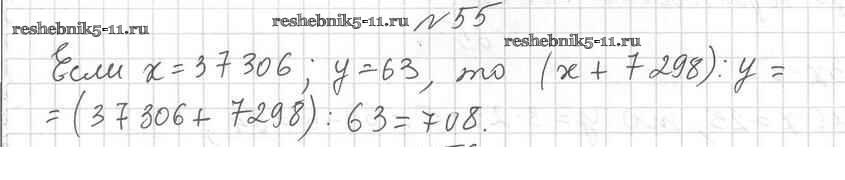 reshebnik5-11.ru
№55
reshebnik5-11.ru
reshebnik5-11.ru
Если x = 37 306; y = 63, то (x + 7 298) : y =
= (37 306 + 7298) : 63 = 708.